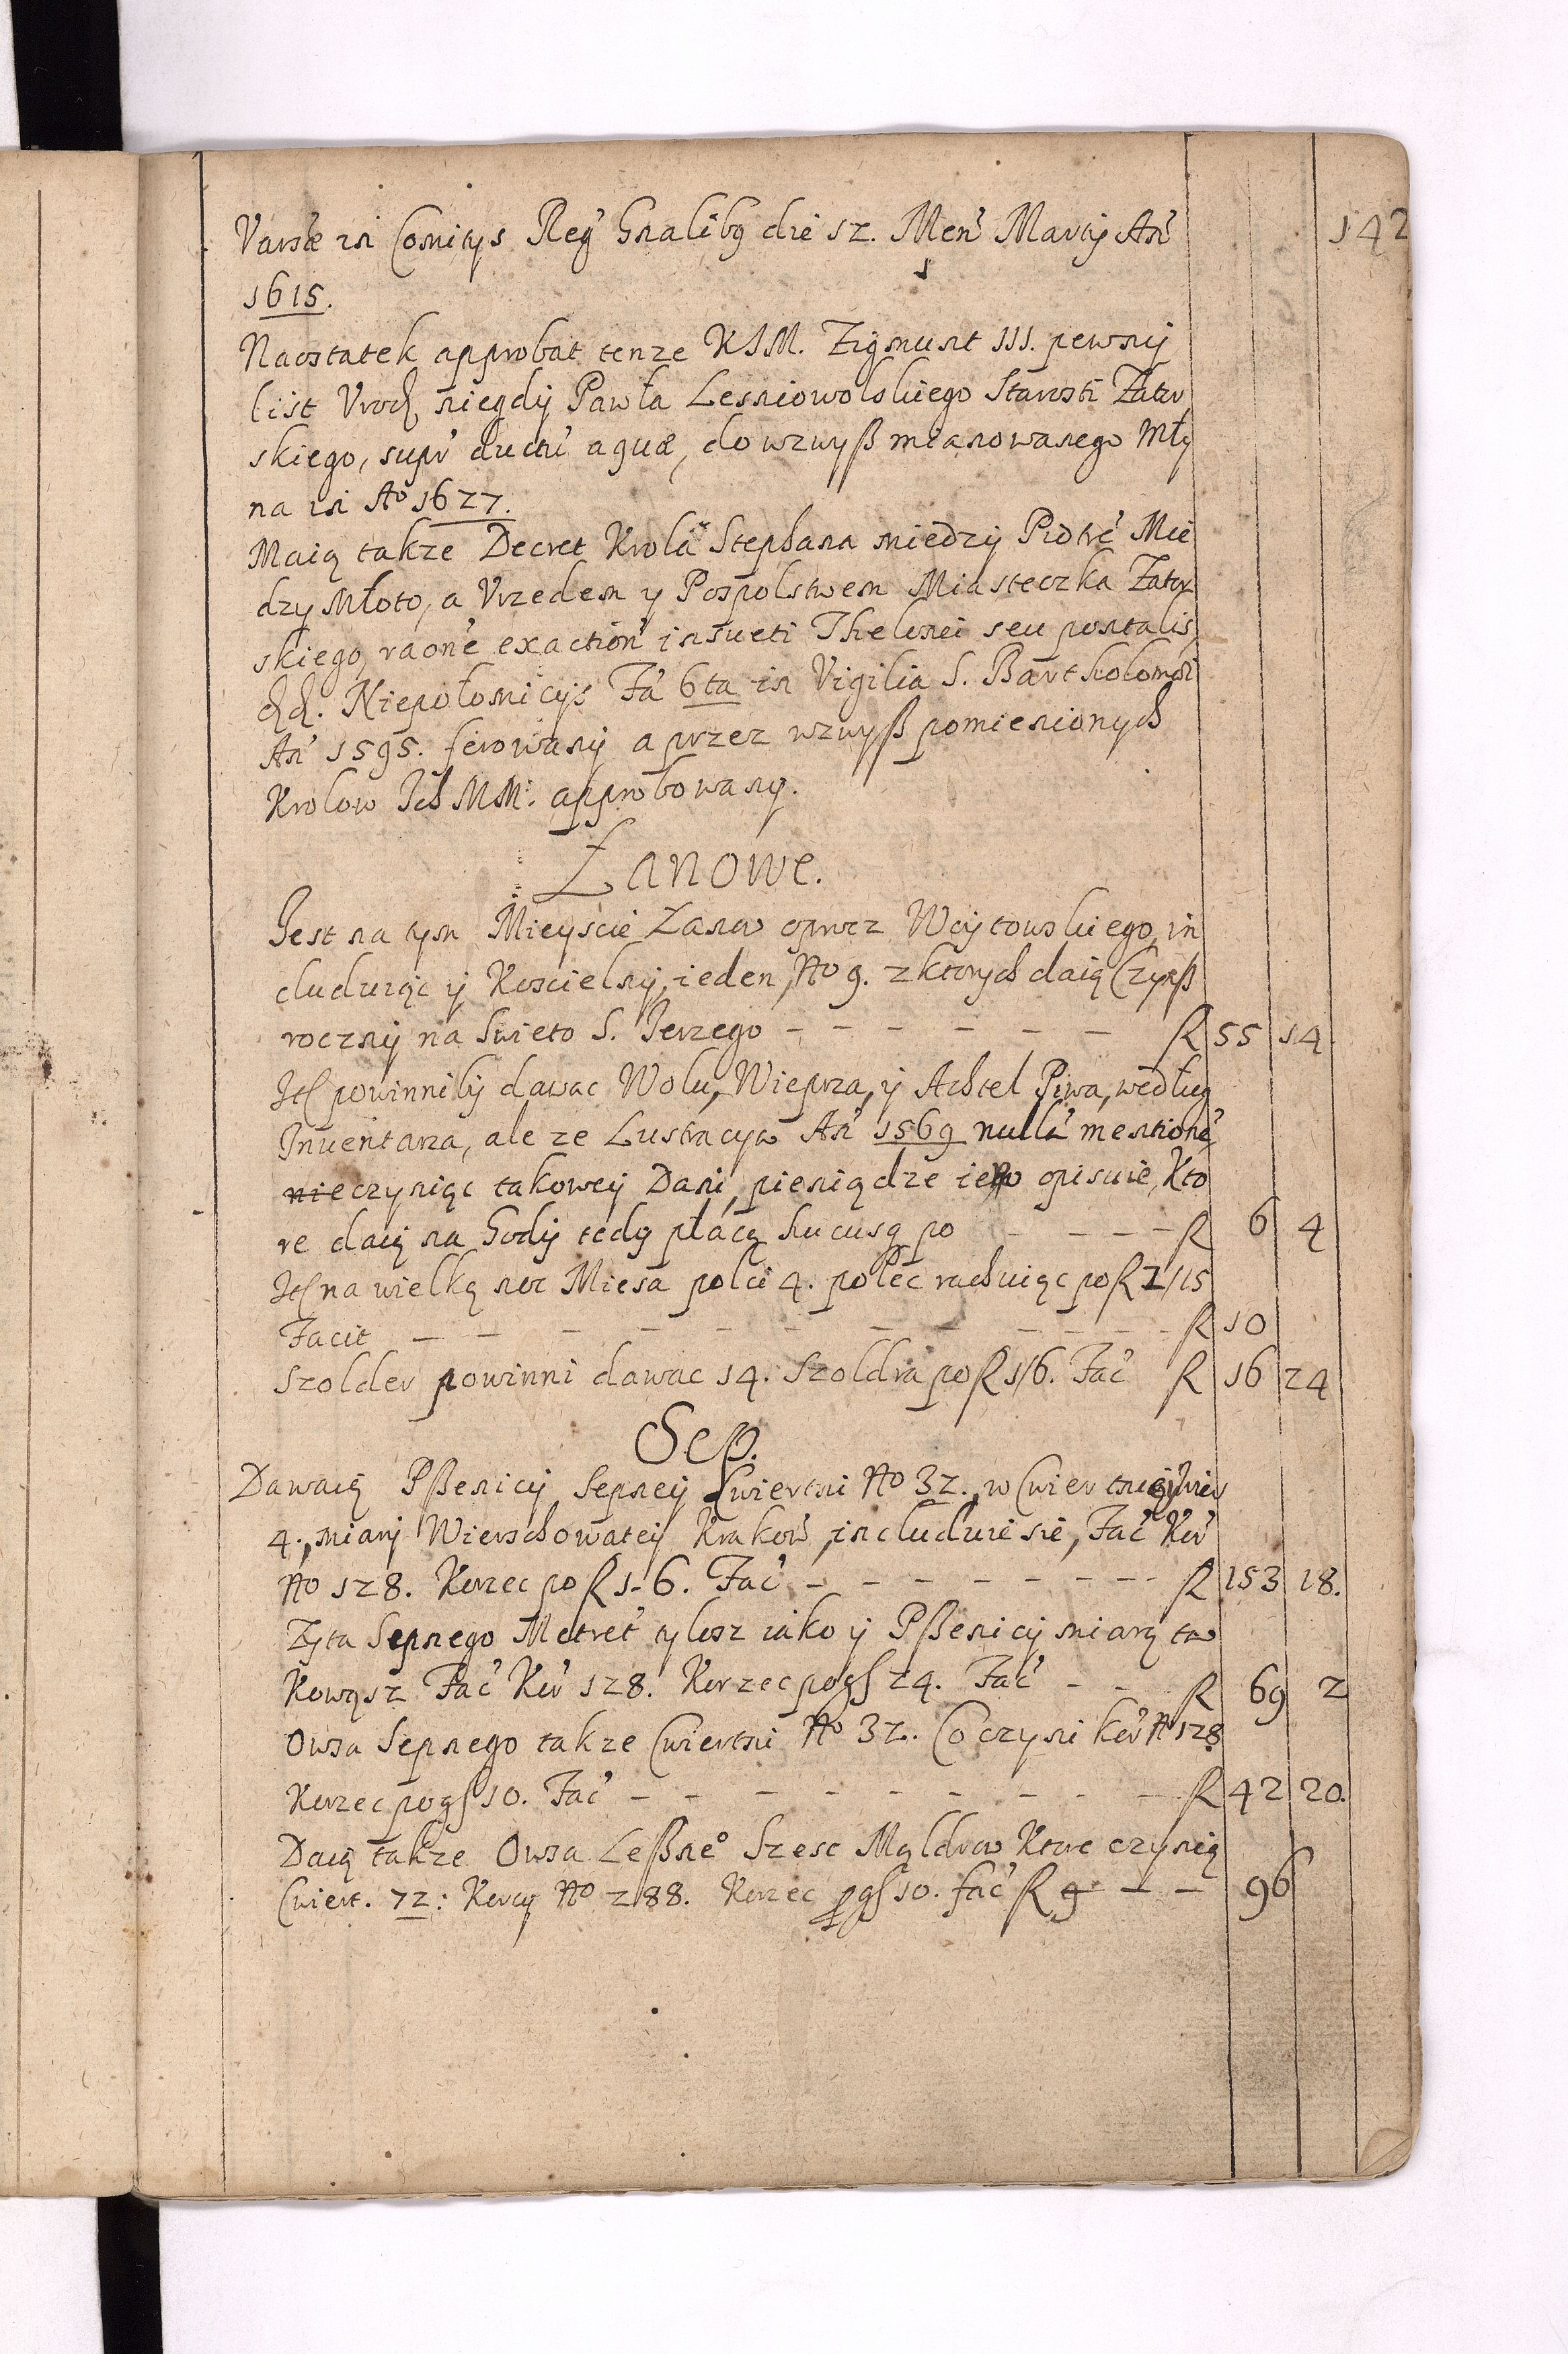 142
Varsae in Comitys Reg' Gnalibq die 12. Men' Marty An'
1615.
Naostatek approbat tenze KJM. Zigmunt III. pewny
list Vrod. niegdy Pawła Lesniowolskiego Starosti Zator
skiego, supr' ductu' aquae, do wzwyß mianowanego Mły
na in Ao 1627.
Maią takze Decret Krola Stephana miedzy Piotre' Mie
dzy Młoto, a Vrzedem y Pospolstwem Miasteczka Zator
skiego, raone' exaction' insueti Thelonei seu pontalis
dd. Niepołomicys Fa' 6ta in Vigilia S. Bartholomei
An' 1595. ferowany a przez wzwyß pomienionych
Krolow Ich MM: approbowany.
Łanowe.
Jest na tym Mieyscie Łanow oprocz Woytowskiego, in
cluduiąc y Koscielny, ieden, No 9. z ktorych daią Czynß
roczny na Swieto S. Jerzego - - - - - - R 55 14
Jt powinniby dawac Wołu, Wieprza, y Achtel Piwa, według
Inuentarza, ale ze Lustracya An' 1569 nulla' mentione'
nieczyniąc takowey Dani, pieniądze opisuie, Kto
re daią na Gody tedy płacą hucusq po - - - - R 6 4
Jt na wielką noc Miesa polci 4. połec rachuiąc po R 2/15
Facit - - - - - - - - - - R 10
Szolder powinni dawac 14. Szoldra po R 1/6. Fac' R 16 24
Sep.
Dawaią Pßenicy Sepney Cwiertni No 32., w Cwiertni
4., miary Wierzchowatey Krakow', includuie sie, Fac' Kor'
No 128. Korzec po R 1-6. Fac' - - - - - - - - R 153 18.
Zyta Sepnego Metret' tylosz iako y Pßenicy miarą ta
Kowąsz Fac' Kor' 128. Korzec po gs 24. Fac' - - - R 69 2
Owsa Sepnego takze Cwiertni No 32. Co czyni kor' No 128
Korzec po gs 10. Fac' - - - - - - - - - R 42 20.
Daią takze Owsa Leßneo Szesc Małdrow Ktore czynią
Cwiert. 72: Korcy No 288. Korzec p gs 10. fac' R 9 - - 96